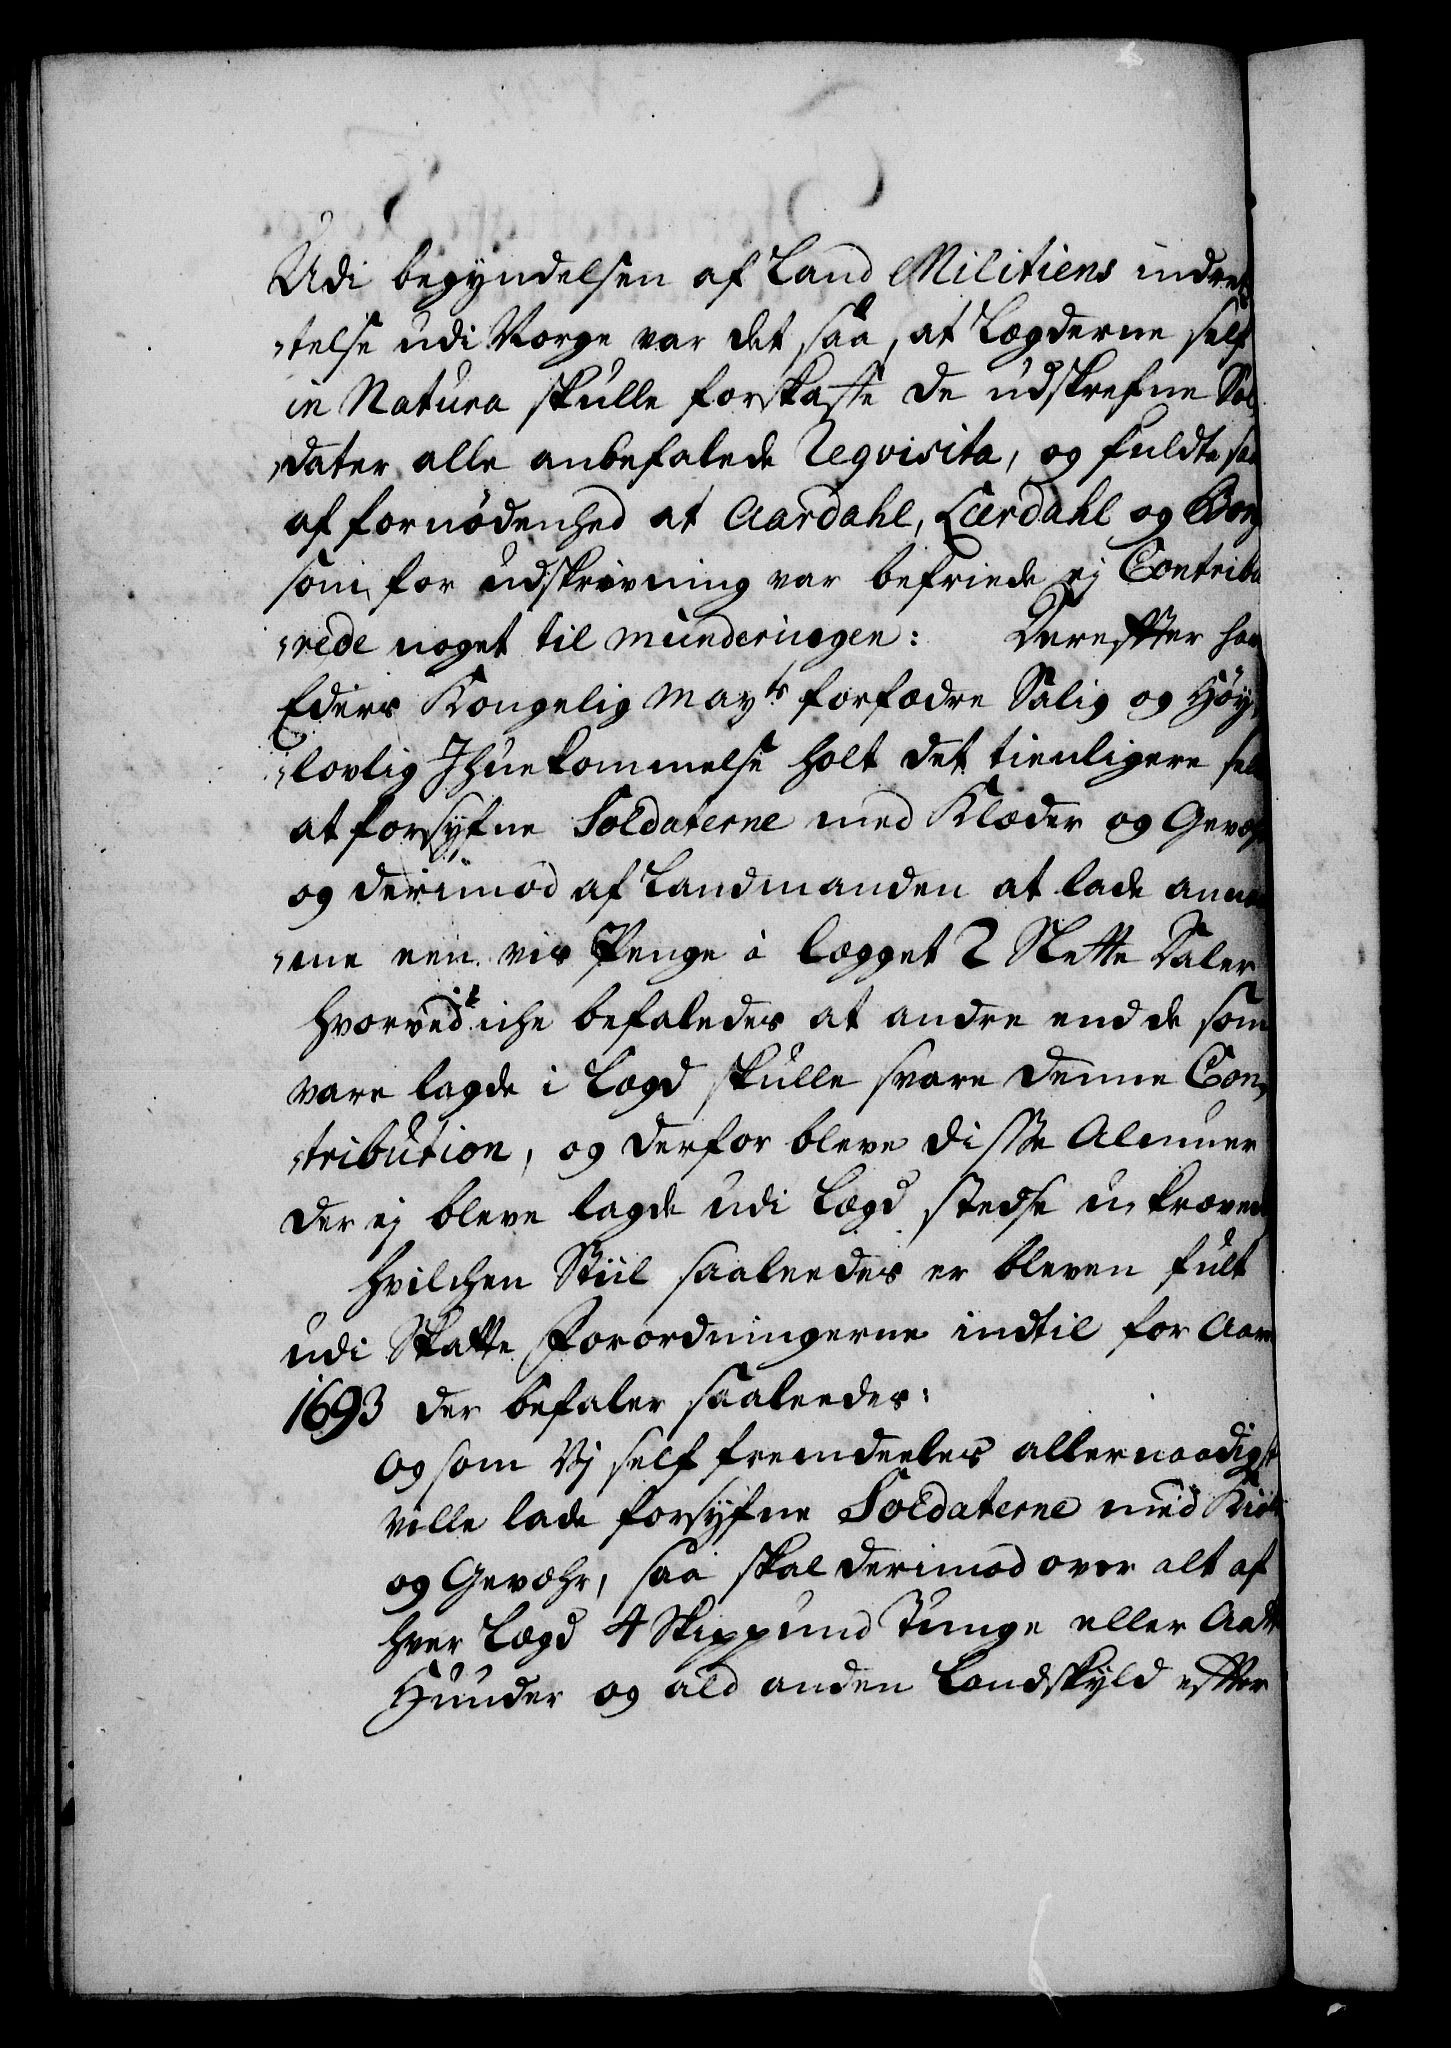 Udi begyndelsen af Land Militiens indret
telse udi Norge var det saa, at Legderne self
in Natura skulle forskaffe de udskrefne Sol
dater alle anbefalede Reqvisita, og fuldte saa
af fornødenhed at Aardahl, Lærdahl og Borg
som for udskrivning var befriede ej Contribu
rede noget til munderingen: Derefter har
Eders Kongelig Mayts forfædre Salig og Høy
lovlig Ihuekommelse holt det tienligere self
at forsyfne Soldaterne med Klæder og Gevæhr
og derimod af Landmanden at lade annam
me een vis Penge à legget 2 Slette Daler
hvorved iche befaledes at andre end de som
vare lagde i Legd skulle svare denne Con
tribution, og derfor bleve disse Almuer
der ej bleve lagde udi Legd stedse u krævede
hvilchen Stiil saaleedes er bleven fult
udi Skatte Forordningerne indtil for Aare
1693 der befaler saaleedes:
Og som Vj self fremdeeles allernaadigst
ville lade forsyfne Soldaterne med
og Gevæhr, saa skal derimod over alt af
hver Legd 4 Skippund Tunge eller
Hunder og ald anden Landskyld effter